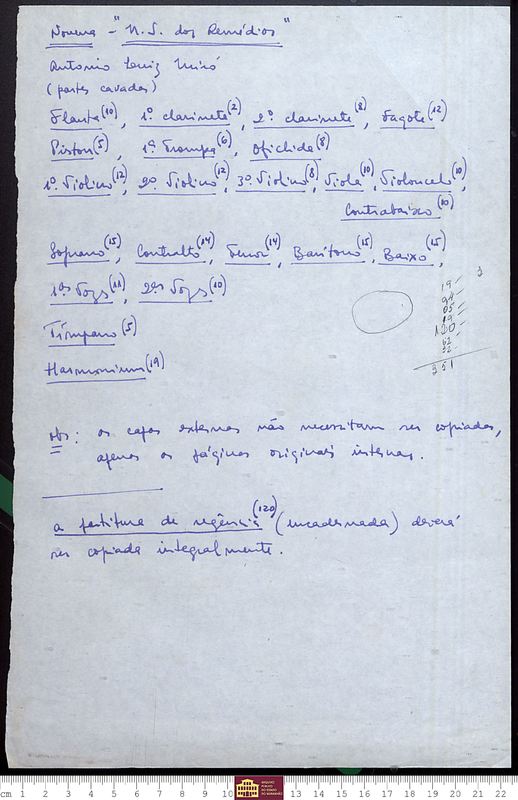 Novena - "N. S. dos Remédios"
Antonio Luiz Miró
(partes cavadas)
Flauta (10), 1º clarinete (2), 2º clarinete (8), Fagote (12)
Piston (5), 1ª Trompa (6), Oficlide (8)
1º Violino (12), 2º Violino (12), 3º Violino (8), Viola (10), Violoncelo (10),
Contrabaixo (10)
Soprano (15), Contralto (14), Tenor (14), Barítono (15), Baixo (15),
1ªs Vozes (11), 2ªs Vozes (10)
Tímpano (5)
Harmonium (19)
19
94
05
19
120
62
32
351
obs: as capas externas não necessitam ser copiadas,
apenas as páginas originais internas.
a partitura de regência (120) (encadernada) deverá
ser copiada integralmente.
cm 1 2 3 4 5 6 7 8 9 10 13 14 15 16 17 18 19 20 21 22
ARQUIVO PÚBLICO DO ESTADO DO MARANHÃO